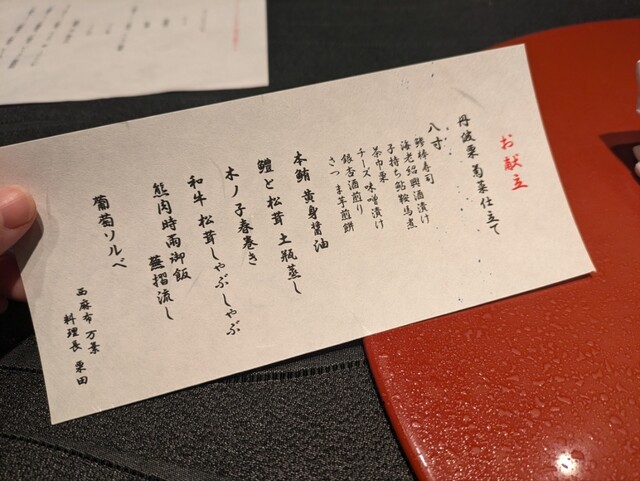 お献立
丹波栗 菊菜仕立て
八寸
鱧棒寿司
海老紹興酒漬け
子持ち鮎鞍馬煮
茶巾栗
チーズ味噌漬け
銀杏酒煎り
さつま芋煎餅
本鮪 黄身醤油
鱧と松茸 土瓶蒸し
木ノ子春巻き
和牛 松茸しゃぶしゃぶ
熊肉時雨御飯 蕪摺流し
葡萄ソルベ
西麻布 万景
料理長 栗田